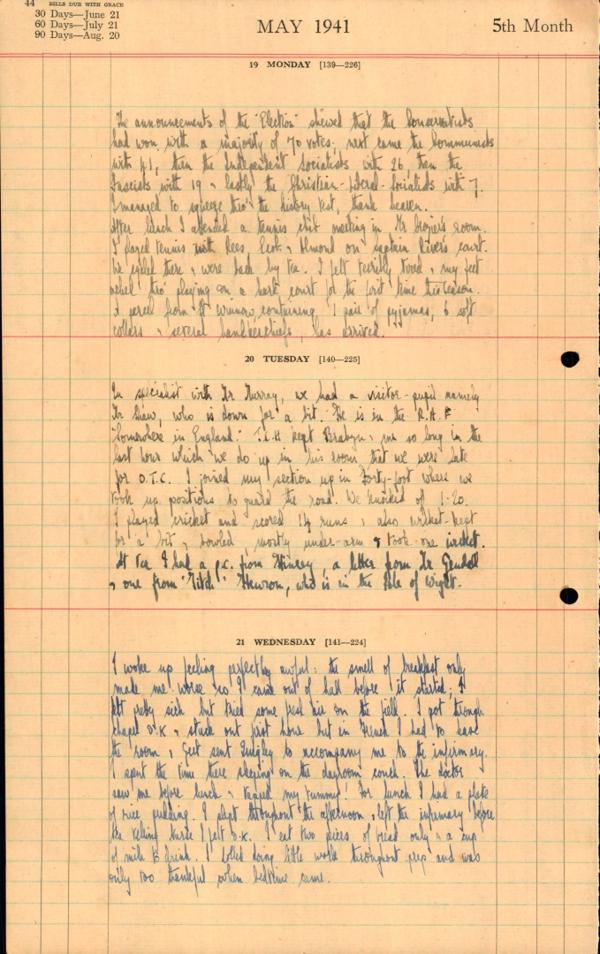 44 BILLS DUE WITH GRACE
30 Days—June 21
60 Days—July 21
90 Days—Aug. 20
MAY 1941
5th Month
19 MONDAY [139—226]
The announcements of the "Election" shewed that the Conservatives
had won with a majority of 70 votes; next came the Communists
with 41, then the Independent Socialists with 26, then the
Fascists with 19 & lastly the Christian-Liberal-Socialists with 7.
I managed to squeeze thro' the history test, thank heaven.
After lunch I attended a tennis club meeting in Mr room.
I played tennis with Rees, & on Captain River's court.
We cycled there & were back by tea. I felt terribly tired & my feet
ached thro' playing on a hard court for the first time this season.
A parcel from St Winnow, containing 1 pair of pyjamas, 6 soft
collars & several handkerchiefs, has arrived.
20 TUESDAY [140—225]
In specialist with Mr Murray, we had a visitor-pupil namely
Mr Shaw, who is down for a bit. He is in the R.A.F
"Somewhere in England." kept & me so long in the
last hour which we do up in his room that we were late
for O.T.C. I joined my section up in Forty-foot where we
took up positions to guard the road. We knocked off 1.20.
I played cricket and scored runs & also wicket-kept
for a bit & bowled, mostly under-arm & took one wicket.
At tea I had a p.c. from , a letter from Mr
& one from "Titch" , who is in the Isle of Wight.
21 WEDNESDAY [141—224]
I woke up feeling perfectly awful: the smell of breakfast only
made me worse so I came out of hall before it started; I
felt sick but tried some fresh air on the field. I got through
chapel O.K & stuck out first hour but in French I had to leave
the room & sent Quigley to accompany me to the infirmary.
I spent the time there sleeping on the dayroom couch. The doctor
saw me before lunch & my tummy! For lunch I had a plate
of rice pudding. I slept throughout the afternoon & left the infirmary before
tea telling Nurse I felt O.K. I eat two pieces of bread only & a cup
of milk to drink. I lolled doing little work throughout prep and was
only too thankful when bedtime came.